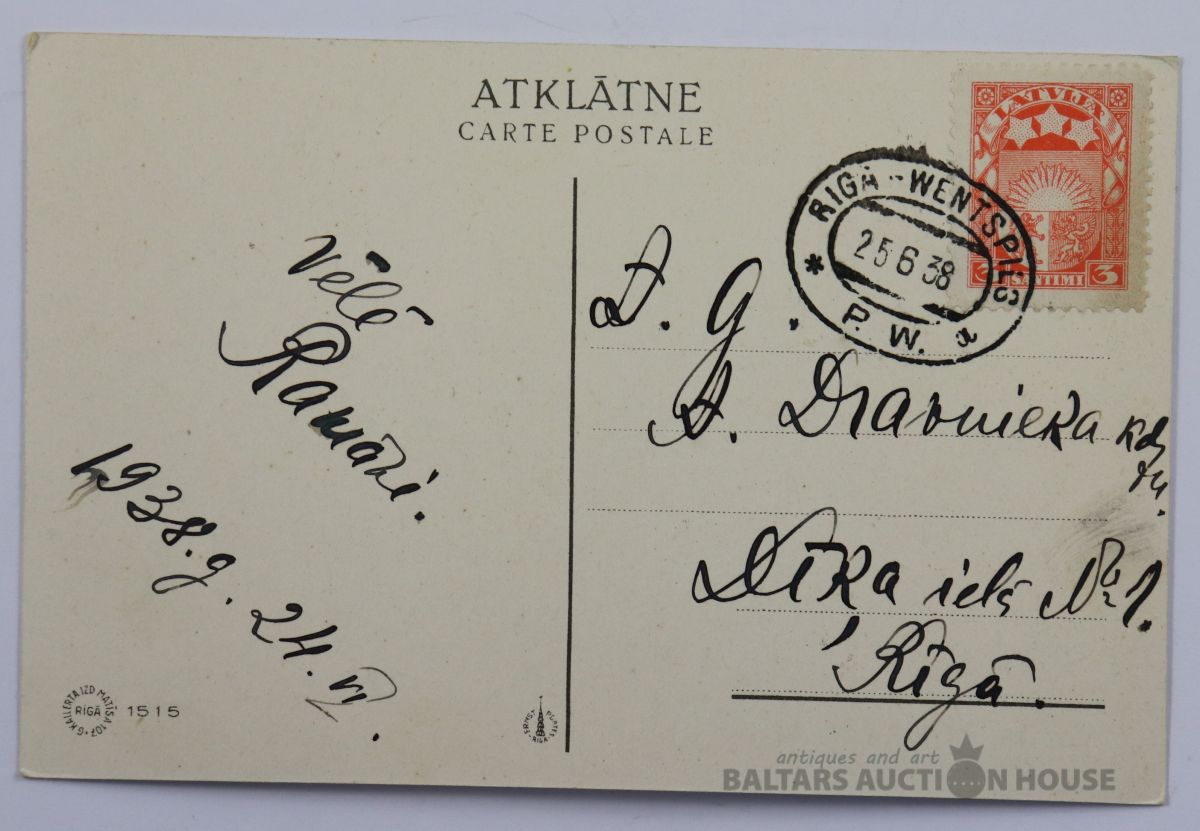 ATKLĀTNE
CARTE POSTALE
LATVIJA
3 SANTIMI 3
RIGA - WENTSPILS
25 6 38
P. W. a
Vēlē
Ramāni.
1938.g. 24. VI.
A. g.
A. Dravnieka kdz
Dīķa ielā № 1.
Rīgā.
G. KAILERTA IZD MATĪSA 107
RĪGĀ
1515
ERNST PLATES
RIGA
antiques and art
BALTARS AUCTION HOUSE